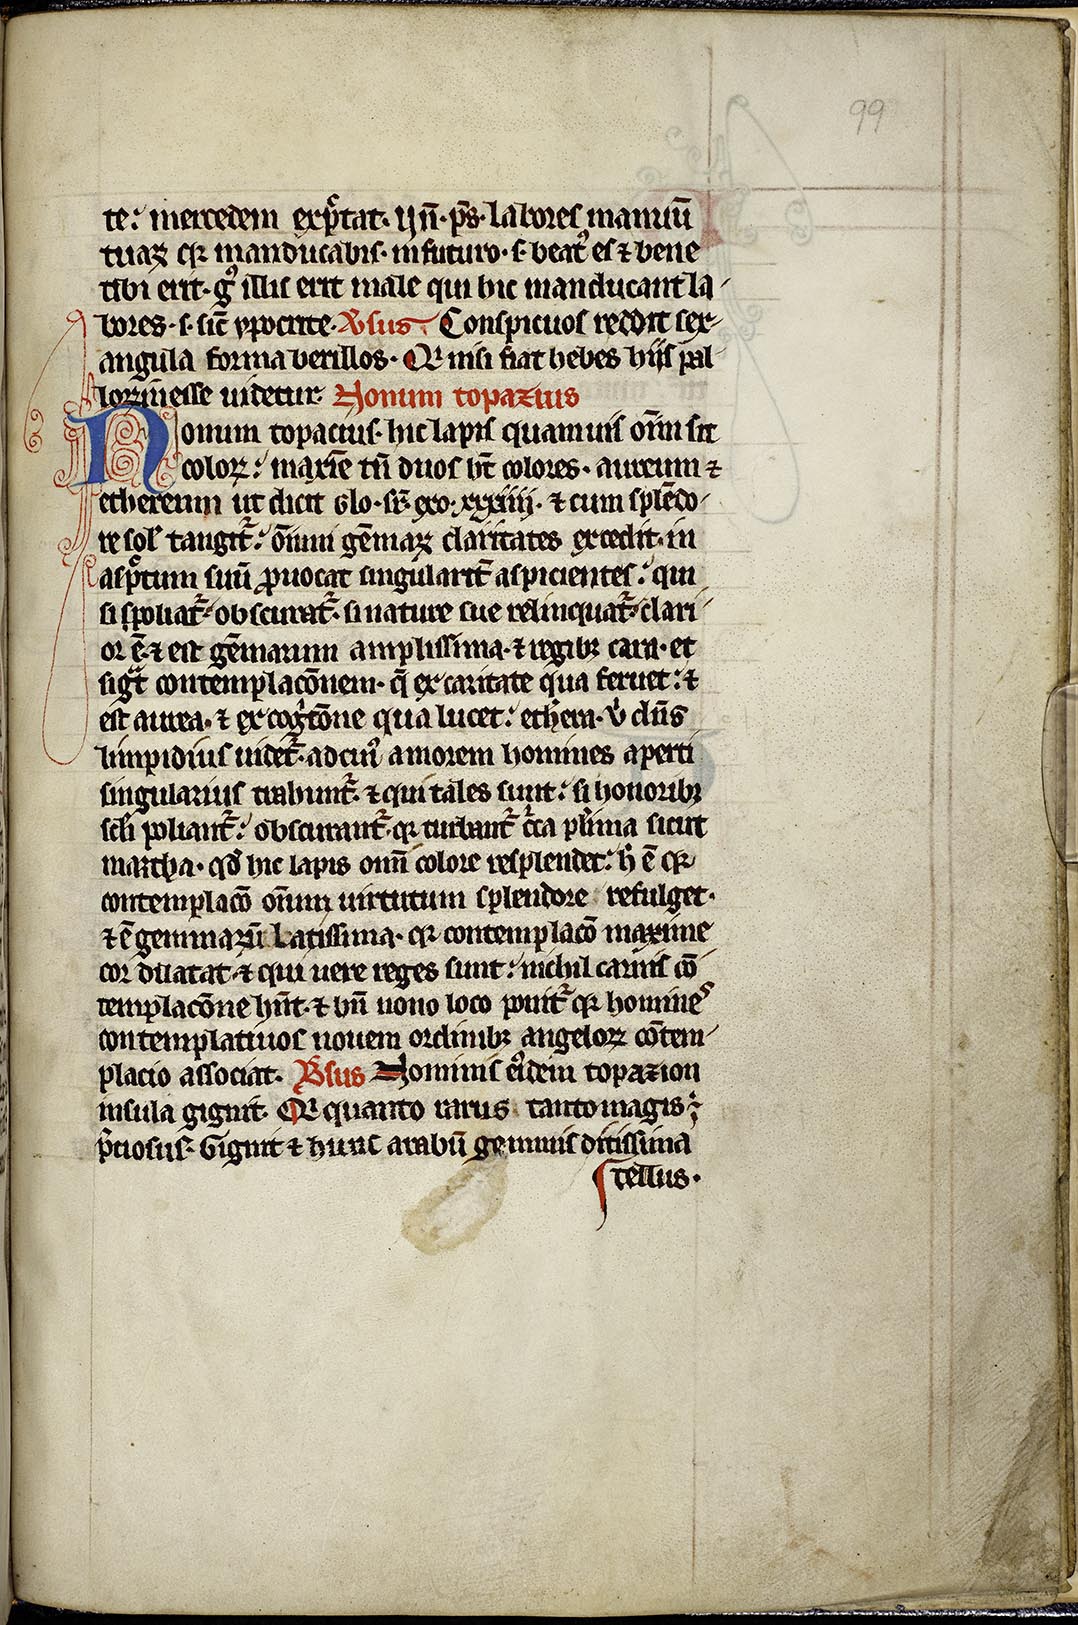 99
te: mercedem exp̃tat. Un̄. p̃s. labores manuū
tuaꝝ qꝛ manducabis. in futuro. s. beatꝰ es ⁊ bene
tibi erit. gͦ illic erit male qui hic manducant la-
bores. s. sic̄ ypocrite. Ṽsus. Conspicuos reddit sex-
angula forma berillos. Qꝛ nisi fiat hebes hijs pal
lor inesse uidetur. Nonum topazius
Nonum topacius. hic lapis quamuis om̄īu sit
coloꝝ: maxīe tn̄ duos ht̄ colores. aureum ⁊
ethereum ut dicit Glo. sr̄. exo. xxxiiij. ⁊ cum splēdo-
re sol̕ tangit᷑: om̄ium gēmaꝝ claritates excedit. in
asp̃tum suū ꝓuocat singularit̄ aspicientes: qui
si spoliat᷑. obscurat᷑. si nature sue relinquat᷑. clari-
or ē. ⁊ est gēmarum amplissima. ⁊ regibꝫ cara. et
sig̃t contemplacōnem. q̄ ex caritate qua feruet: ⁊
est aurea. ⁊ ex cog̃tōne qua lucet: etherea. ỽ dn̄s
limpidius uidet᷑. ad cuiꝰ amorem homines aperti
singularius trahunt᷑. ⁊ qui tales sunt: si honoribꝫ
scl̄i poliant᷑: obscurant᷑. qꝛ turbant᷑ c̃ca plurima sicut
martha. qd̄ hic lapis omni colore resplendet: h̄ ē qꝛ
contemplacō om̄ium uirtutum splendore refulget.
⁊ ē gemmarū Latissima. qꝛ contemplacō maxime
cor dilatat. ⁊ qui uere reges sunt: nichil carius cō-
templacōne hn̄t. ⁊ bn̄ nono loco ponit᷑ qꝛ homines
contemplatiuos nouem ordinibꝫ angeloꝝ cōtem-
placio associat. Ṽsus Nominis eiꝰdem topazion
insula gignit. Qꝛ quanto rarus tanto magis:
p̃ciosus. Gignit ⁊ hunc arabū gemmis ditissima
tellus.